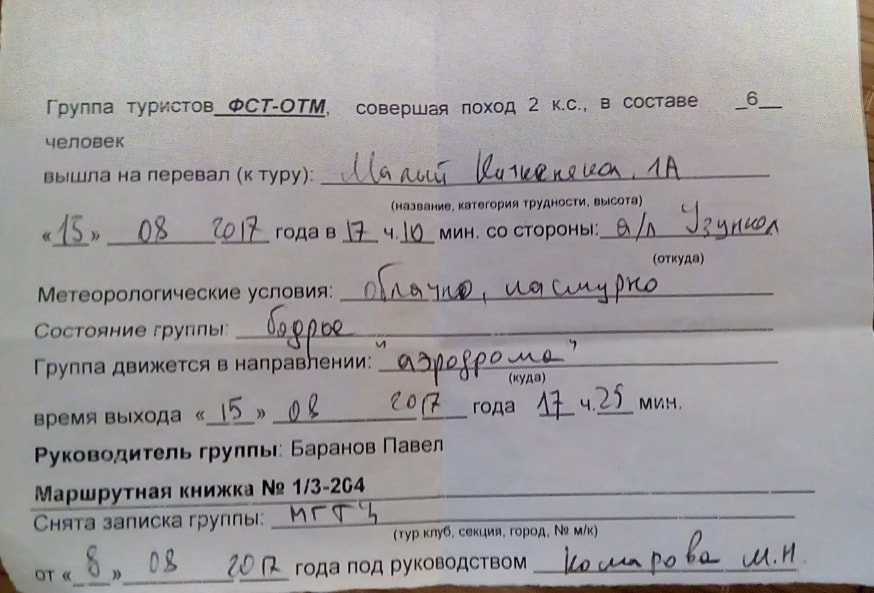 Группа туристов ФСТ-ОТМ, совершая поход 2 к.с., в составе _6__
человек
вышла на перевал (к туру): Малый Кичкенекол 1А
(название, категория трудности, высота)
«15» 08 2017 года в 17 ч. 10 мин. со стороны: а/л Узункол
(откуда)
Метеорологические условия: облачно, пасмурно
Состояние группы: бодрое
Группа движется в направлении: "аэродрома"
(куда)
время выхода «15» 08 2017 года 17 ч. 25 мин.
Руководитель группы: Баранов Павел
Маршрутная книжка № 1/3-204
Снята записка группы: МГТУ
(тур.клуб, секция, город, № м/к)
от «8» 08 2017 года под руководством Комарова М.Н.